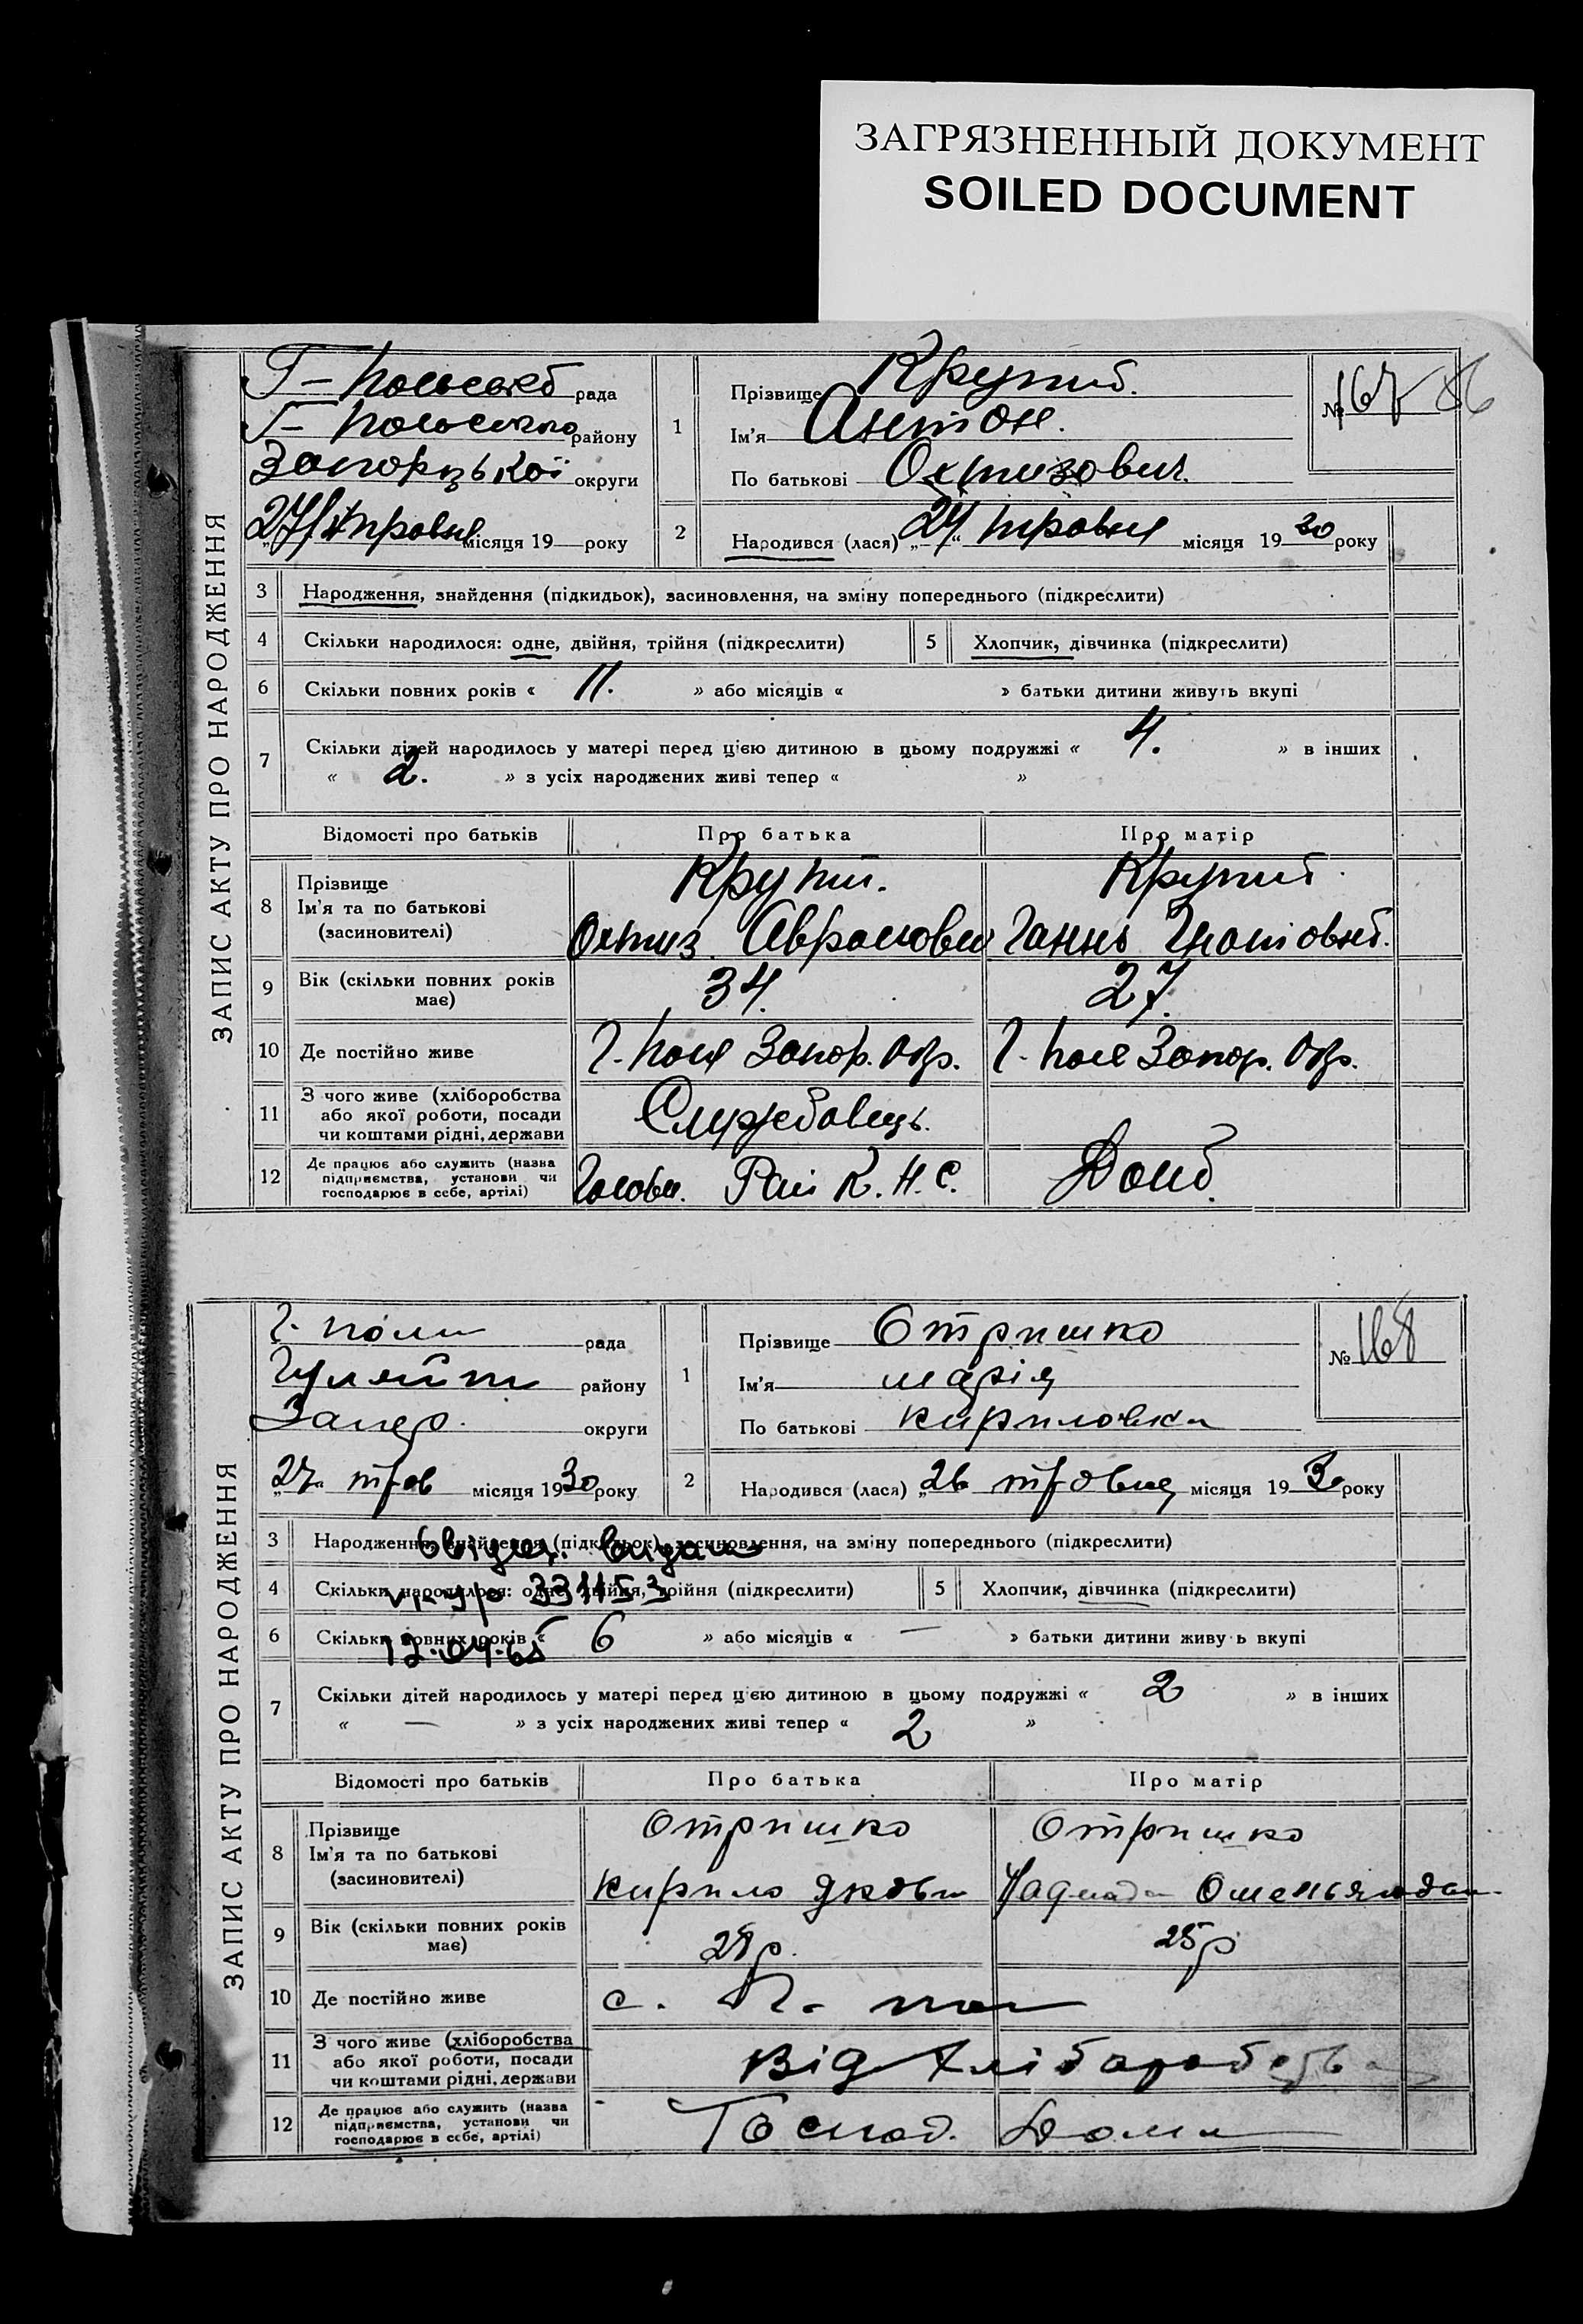 ЗАГРЯЗНЕННЫЙ ДОКУМЕНТ
SOILED DOCUMENT
ЗАПИС АКТУ ПРО НАРОДЖЕННЯ
рада
району
Запорізької округи
27/ травня місяця 19 року
1 Прізвище Крупий.
Ім'я Антон.
По батькові Охтизович.
№ 167 86
2 Народився (лася) „24“ травня місяця 1930 року
3 Народження, знайдення (підкидьок), засиновлення, на зміну попереднього (підкреслити)
4 Скільки народилося: одне, двійня, трійня (підкреслити) 5 Хлопчик, дівчинка (підкреслити)
6 Скільки повних років « 11. » або місяців « » батьки дитини живуть вкупі
7 Скільки дітей народилось у матері перед цією дитиною в цьому подружжі « 4. » в інших
« 2. » з усіх народжених живі тепер « »
Відомості про батьків Про батька Про матір
8 Прізвище Крупий. Крупий
Ім'я та по батькові
(засиновителі) Охтиз
9 Вік (скільки повних років має) 34. 27.
10 Де постійно живе Г. Поле Запор. Окр. Г. Поле Запор. Окр.
11 З чого живе (хліборобства
або якої роботи, посади
чи коштами рідні, держави Службовець.
12 Де працює або служить (назва
підприємства, установи чи
господарює в себе, артілі) Голова. Рай К.Н.С.
ЗАПИС АКТУ ПРО НАРОДЖЕННЯ
Г. поли рада
району
Запор. округи
„27“ трав місяця 1930 року
1 Прізвище Отришко
Ім'я марія
По батькові кириловна
№ 168
2 Народився (лася) „26 травня місяця 1930 року
3 Народження, знайдення (підкидьок), засиновлення, на зміну попереднього (підкреслити)
видано
4 Скільки народилося: одне, двійня, трійня (підкреслити) 5 Хлопчик, дівчинка (підкреслити)
331153
6 Скільки повних років « 6 » або місяців « — » батьки дитини живуть вкупі
12.04.65
7 Скільки дітей народилось у матері перед цією дитиною в цьому подружжі « 2 » в інших
« — » з усіх народжених живі тепер « 2 »
Відомості про батьків Про батька Про матір
8 Прізвище Отришко Отришко
Ім'я та по батькові
(засиновителі) кирило
9 Вік (скільки повних років має) 28 р. 25 р
10 Де постійно живе с. Г. пол
11 З чого живе (хліборобства
або якої роботи, посади
чи коштами рідні, держави від хліборобства
12 Де працює або служить (назва
підприємства, установи чи
господарює в себе, артілі) Господ. Дома